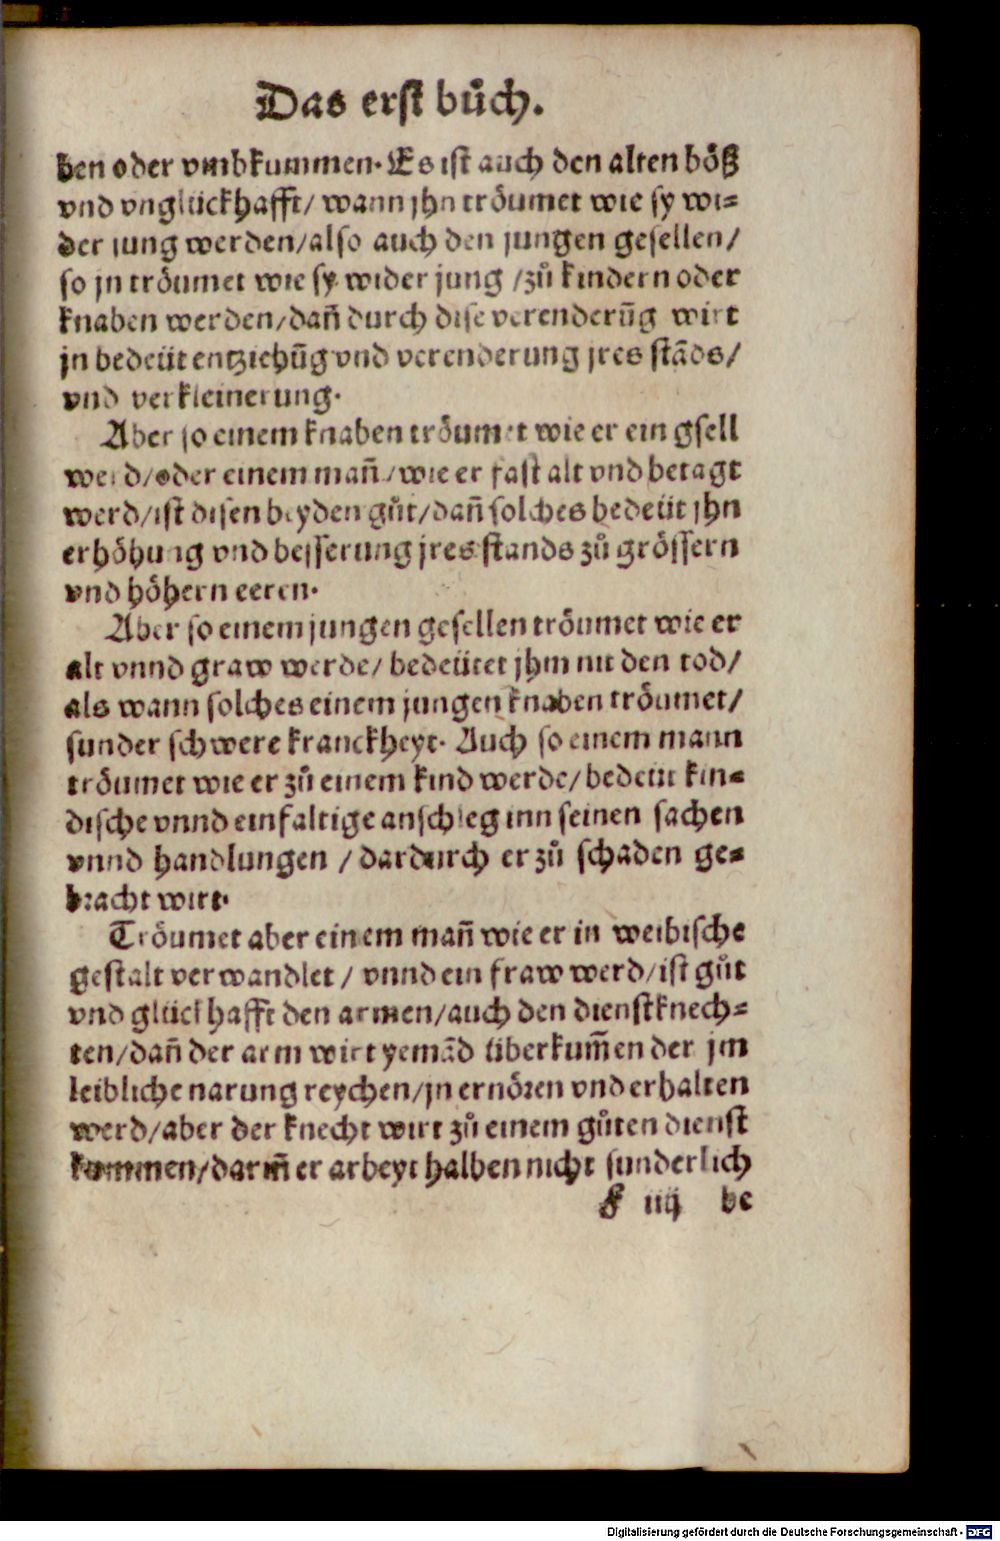 Das erst bůch.
ben oder vmbkummen. Es ist auch den alten böß
vnd vnglückhafft/ wann jhn tröumet wie sy wi-
der jung werden/also auch den jungen gesellen/
so jn tröumet wie sy wider jung /zů kindern oder
knaben werden/dañ durch dise verenderũg wirt
jn bedeüt entziehũg vnd verenderung jres stãds/
vnd verkleinerung.
Aber so einem knaben tröumet wie er ein gsell
werd/oder einem mañ/wie er fast alt vnd betagt
werd/ist disen beyden gůt/dañ solches bedeüt jhn
erhöhung vnd besserung jres stands zů grössern
vnd höhern eeren.
Aber so einem jungen gesellen tröumet wie er
alt vnnd graw werde/ bedeütet jhm nit den tod/
als wann solches einem jungen knaben tröumet/
sunder schwere kranckheyt. Auch so einem mann
tröumet wie er zů einem kind werde/bedeüt kin-
dische vnnd einfaltige anschleg inn seinen sachen
vnnd handlungen /dardurch er zů schaden ge-
bracht wirt.
Tröumet aber einem mañ wie er in weibische
gestalt verwandlet/ vnnd ein fraw werd/ist gůt
vnd glückhafft den armen/auch den dienstknech-
ten/dañ der arm wirt yemãd überkum̃en der jm
leibliche narung reychen/jn ernören vnd erhalten
werd/aber der knecht wirt zů einem gůten dienst
kommen/dariñ er arbeyt halben nicht sunderlich
F iiij be
Digitalisierung gefördert durch die Deutsche Forschungsgemeinschaft - DFG